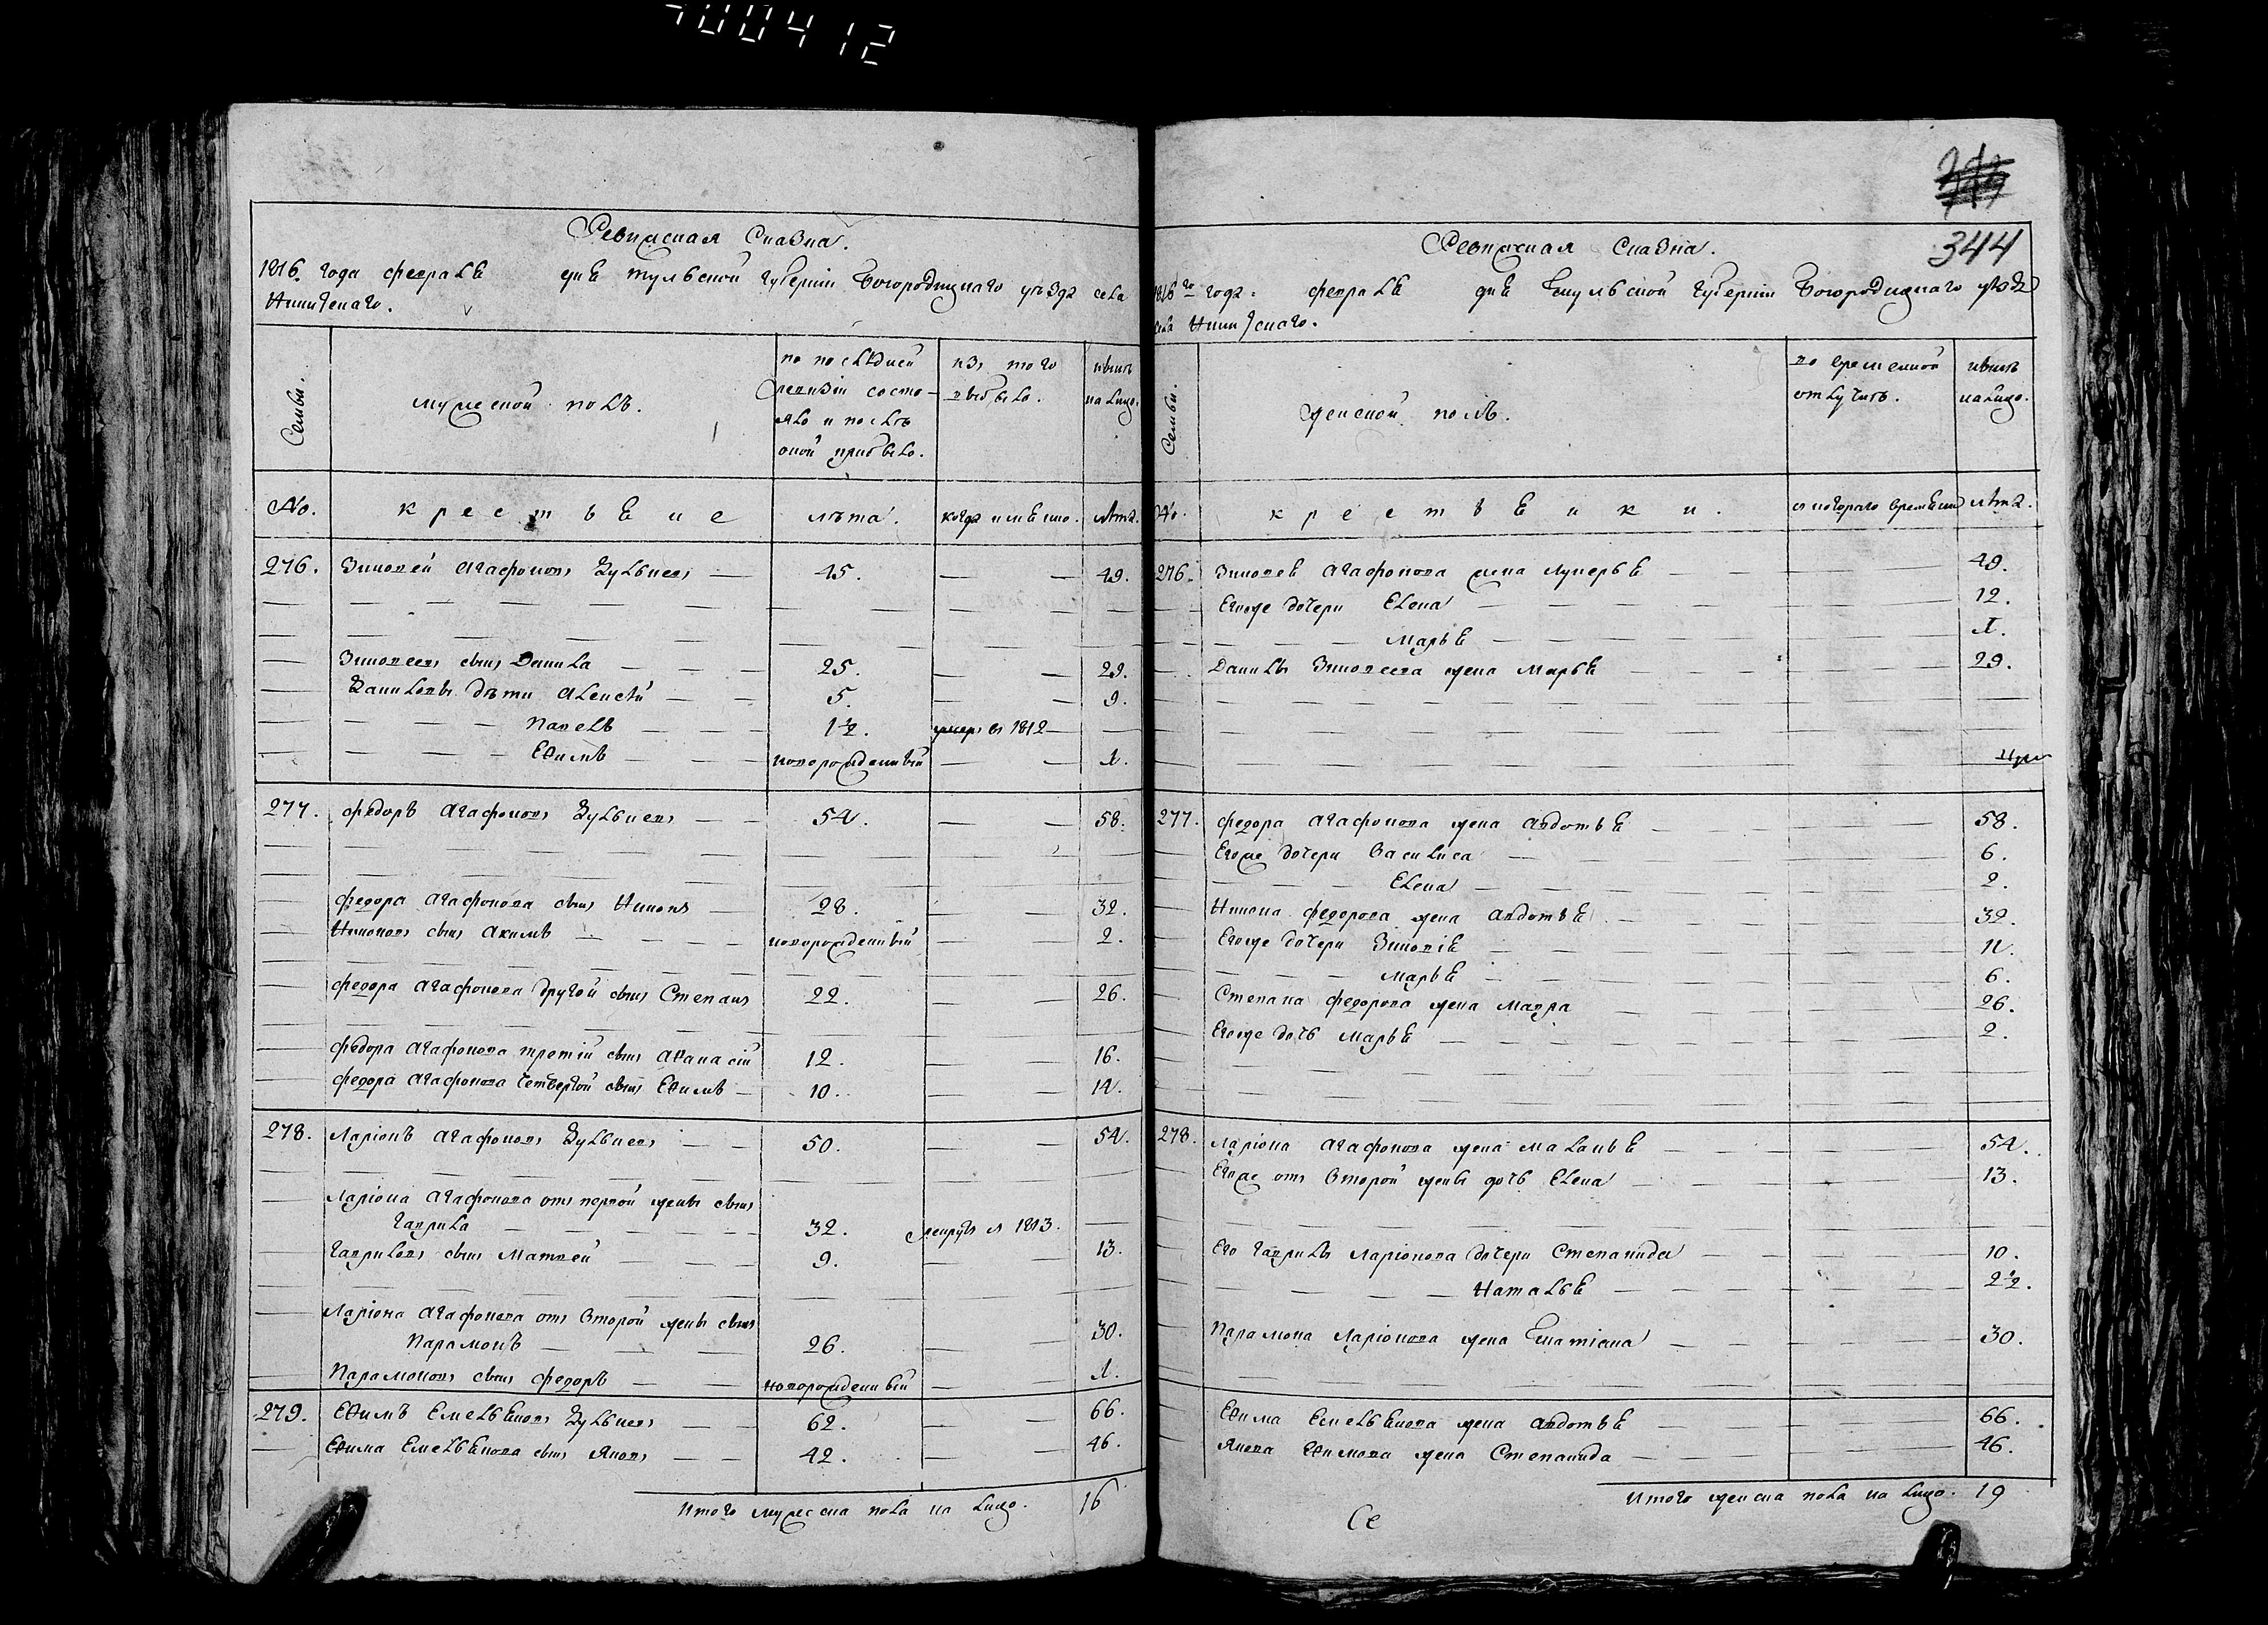 400412
Ревижская Сказка.
1816 года февраля дня Тульской губернии Богородицкаго уѣзда села
Никитскаго.
Семьи.
мужеской полъ.
по послѣдней ревизіи состояло и послѣ оной прибыло.
изъ того выбыло.
нынѣ на лицо.
No. крестьяне лѣта. когда именно. лѣта.
276. Зиновей Агафоновъ Зульневъ — 45. — — 49.
Зиновеевъ сынъ Данила — — — 25. — — 29.
Даниловы дѣти Алексѣй — — 5. — — 9.
— — — Павелъ — — — 1½. умеръ въ 1812 —
— — — Еѳимъ — — — новорожденный — — 1.
277. Федоръ Агафоновъ Зульневъ — — 54. — — 58.
Федора Агафонова сынъ Никонъ — 28. — — 32.
Никоновъ сынъ Акимъ — — — — новорожденный — — 2.
Федора Агафонова другой сынъ Степанъ 22. — — 26.
Федора Агафонова третій сынъ Аѳанасій 12. — — 16.
Федора Агафонова четвертой сынъ Еѳимъ — 10. — — 14.
278. Ларіонъ Агафоновъ Зульневъ — — 50. — — 54.
Ларіона Агафонова отъ первой жены сынъ
Гаврила — — — — — 32. рекрутъ въ 1813. —
Гавриловъ сынъ Матвей — — — 9. — — 13.
Ларіона Агафонова отъ второй жены сынъ
Парамонъ — — — 26. — — 30.
Парамоновъ сынъ Федоръ — — новорожденный — — 1.
279. Еѳимъ Емельяновъ Зульневъ — 62. — — 66.
Еѳима Емельянова сынъ Яковъ — — 42. — — 46.
Итого мужеска пола на лицо. 16
344
Ревижская Сказка.
1816го года февраля дня Тульской губерніи Богородицкаго уѣзда
села Никитскаго.
Семьи.
женской полъ.
во временной отлучкѣ.
нынѣ на лицо.
No. крестьянки. съ котораго времени лѣта.
276. Зиновея Агафонова жена Лукерья — — — — 49.
Егоже дочери Елена — — — — 12.
— — — Марья — — — — 1.
Данилы Зиновеева жена Марья — — — — 29.
277. Федора Агафонова жена Авдотья — — — 58.
Егоже дочери Василиса — — — 6.
— — — Елена — — — — 2.
Никона Федорова жена Авдотья — — — 32.
Егоже дочери Зиновія — — — — 11.
— — — Марья — — — — 6.
Степана Федорова жена Мавра — — — 26.
Егоже дочь Марья — — — — 2.
278. Ларіона Агафонова жена Маланья — — — — 54.
Егоже отъ второй жены дочь Елена — — — 13.
Его Гаврилы Ларіонова дочери Степанида — — — 10.
— — — — Наталья — — — — 2½.
Парамона Ларіонова жена Татіана — — — — 30.
Еѳима Емельянова жена Авдотья — — — 66.
Якова Еѳимова жена Степанида — — — 46.
Итого женска пола на лицо. 19
Се